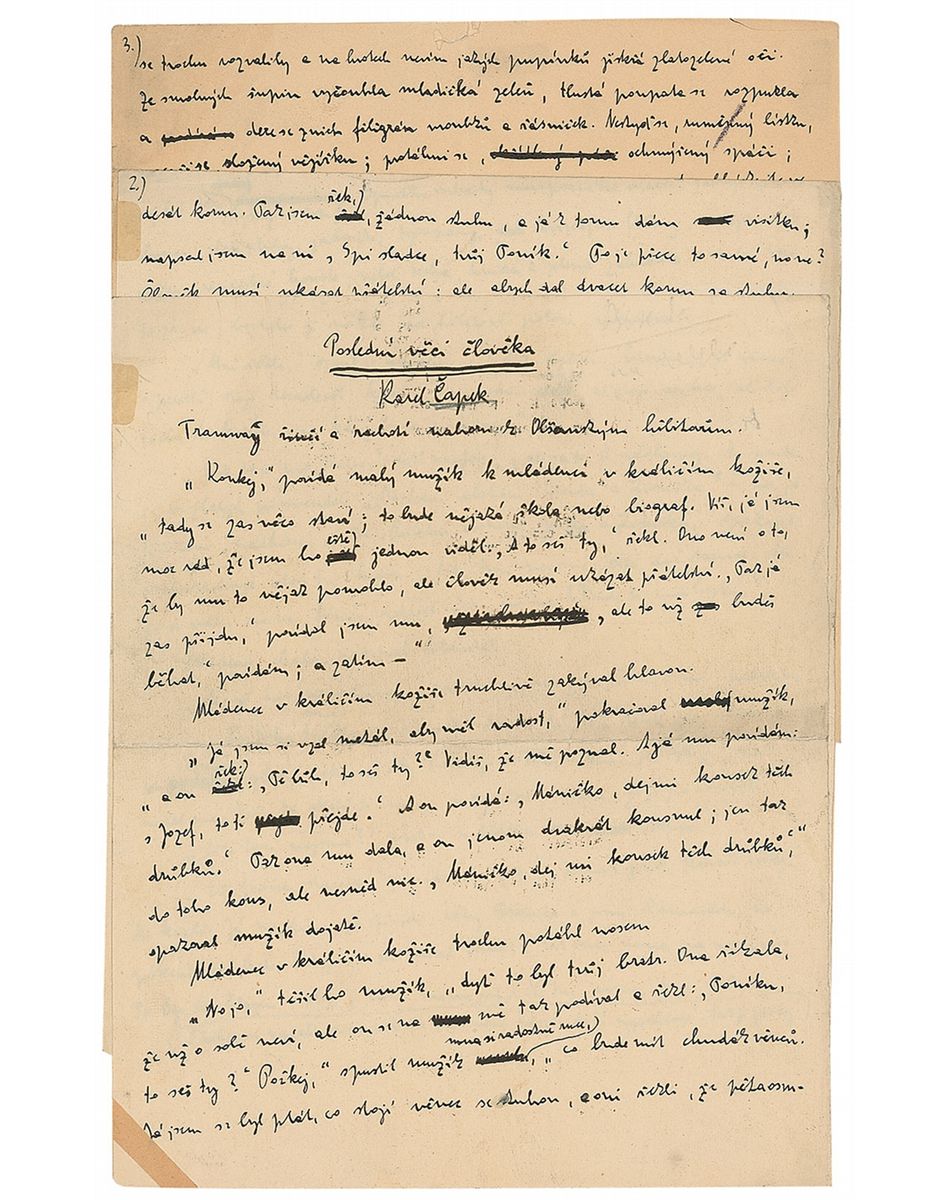 3.)
se trochu rozvalily a na hrotech nevím jakých pupínků jiskří zlatozelené oči.
Ze smolných šupin vyčouhla mladičká zeleň, tlustá poupata se rozpukla
a dere se z nich filigrán mouBků a řásniček. Nestyď se, ruměný lístku,
složený vějířku; protáhni se, ochmýřený spáči;
2.)
deset korun. Tak jsem řek, žádnou stuhu, a já k tomu dám visitku;
napsal jsem na ni ‚Spi sladce, tvůj Toník.‘ To je přece to samé, no ne?
Člověk musí ukázat přátelství; ale abych dal dvacet korun za stuhu,
Poslední věci člověka
Karel Čapek
Tramway řinčí a rachotí nahoru k Olšanským hřbitovům.
„Koukej,“ povídá malý mužík k mládenci v králičím kožiše,
„tady se zas něco staví; to bude nějaká škola nebo biograf. Víš, já jsem
moc rád, že jsem ho eště jednou viděl. ‚A to seš ty,‘ řekl. Ono není o to,
že by mu to nějak pomohlo, ale člověk musí ukázat přátelství. ‚Tak já
zas přijdu,‘ povídal jsem mu, ‚ale to už budeš
běhat,‘ povídám; a zatím —“
Mládenec v králičím kožiše truchlivě zakýval hlavou.
„Já jsem si vzal metál, aby měl radost,“ pokračoval mužík,
„a on řek: ‚Těbůh, to seš ty?‘ Vidíš, že mě poznal. A já mu povídám:
‚Jozef, to ti přejde.‘ A on povídá: ‚Máničko, dej mi kousek těch
drůbků.‘ Tak ona mu dala, a on jenom dvakrát kousnul; jen tak
do toho kous, ale nesněd nic. ‚Máničko, dej mi kousek těch drůbků,‘“
opakoval mužík dojatě.
Mládenec v králičím kožiše trochu potáhl nosem
„No jo,“ těšil ho mužík, „dyť to byl tvůj bratr. Ona říkala,
že už o sobě neví, ale on se na mě tak podíval a řekl: ‚Toníku,
to seš ty?‘ Počkej,“ spustil mužík mnohem radostněji, „co bude mít chudák věnců.
Já jsem se byl ptát, co stojí věnec se stuhou, a oni řekli, že pětaosm-